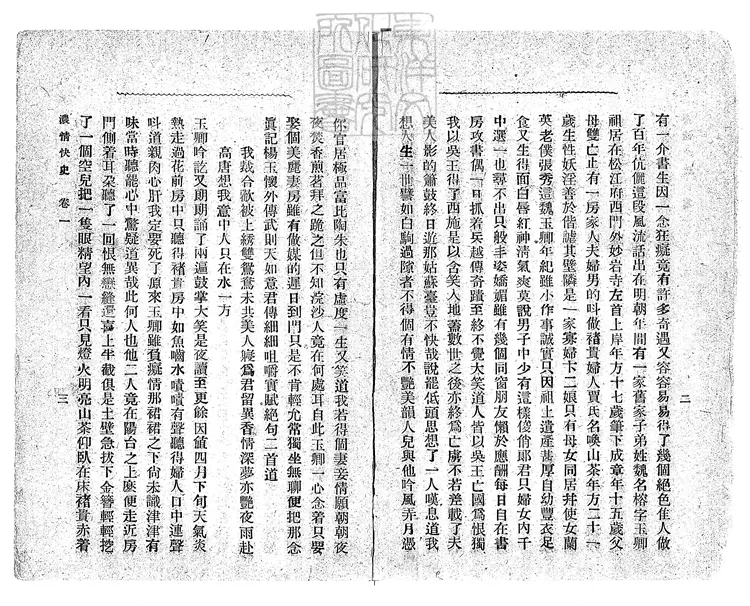 二
有一介書生因一念狂癡竟有許多奇遇又容容易易得了幾個絕色佳人做
了百年伉儷這段風流話出在明朝年間有一家舊家子弟姓魏名榕字玉卿
祖居在松江府西門外妙岩寺左首上岸年方十七歲筆下成章年十五歲父
母雙亡止有一房家人夫婦男的呌做褚貴婦人賈氏名喚山茶年方二十一
歲生性妖淫善於偕謔其壁隣是一家寡婦卞二娘只有母女同居幷使女蘭
英老僕張秀這魏玉卿年紀雖小作事誠實只因祖上遺產甚厚自幼豐衣足
食又生得面白唇紅神淸氣爽莫說男子中少有這樣俊俏郞君只婦女內千
中選一也尋不出只般丰姿嬌媚雖有幾個同窗朋友懶於應酬每日自在書
房攻書偶一日抓着吳越傳奇蹟至終不覺大笑道人皆以吳王亡國爲恨獨
我以吳王得了西施是以含笑入地蓋數世之後亦終爲亡虜不若差載了夫
美人影的簫鼓終日遊那姑蘇臺豈不快哉說罷低頭思想了一人嘆息道我
想人生一世譬如白駒過隙者不得個有情不艷美韻人兒與他吟風弄月憑
你官居極品富比陶朱也只有虛度一生又笑道我若得個妻妾情願朝朝夜
夜焚香煎茗拜之跪之但不知浣沙人竟在何處耳自此玉卿一心念着只要
娶個美麗妻房雖有做媒的遲日到門只是不肯輕允常獨坐無聊便把那念
眞記楊玉懷外傳武則天如意君傳細細咀嚼實賦絕句二首道
我哉合歡被上綉雙鴛鴦未共美人寢爲君留異香情深夢亦艷夜雨赴
高唐想我意中人只在水一方
玉卿吟訖又朗朗誦了兩遍鼓掌大笑是夜讀至更餘因値四月下旬天氣炎
熱走過花前房中只聽得褚貴房中如魚嚙水嘖嘖有聲聽得婦人口中連聲
呌道親肉心肝我定要死了原來玉卿雖負癡情那裙裙之下尙未識津津有
味當時聽罷心中驚疑道異哉此何人也他二人竟在陽台之上麽便走近房
門側着耳朶聽了一回恨無戀縫還喜上半截俱是土壁急拔下金簪輕輕挖
了一個空兒把一隻眼精望內一看只見燈火明亮山茶仰臥在床褚貴赤着
濃情快史 卷一
三